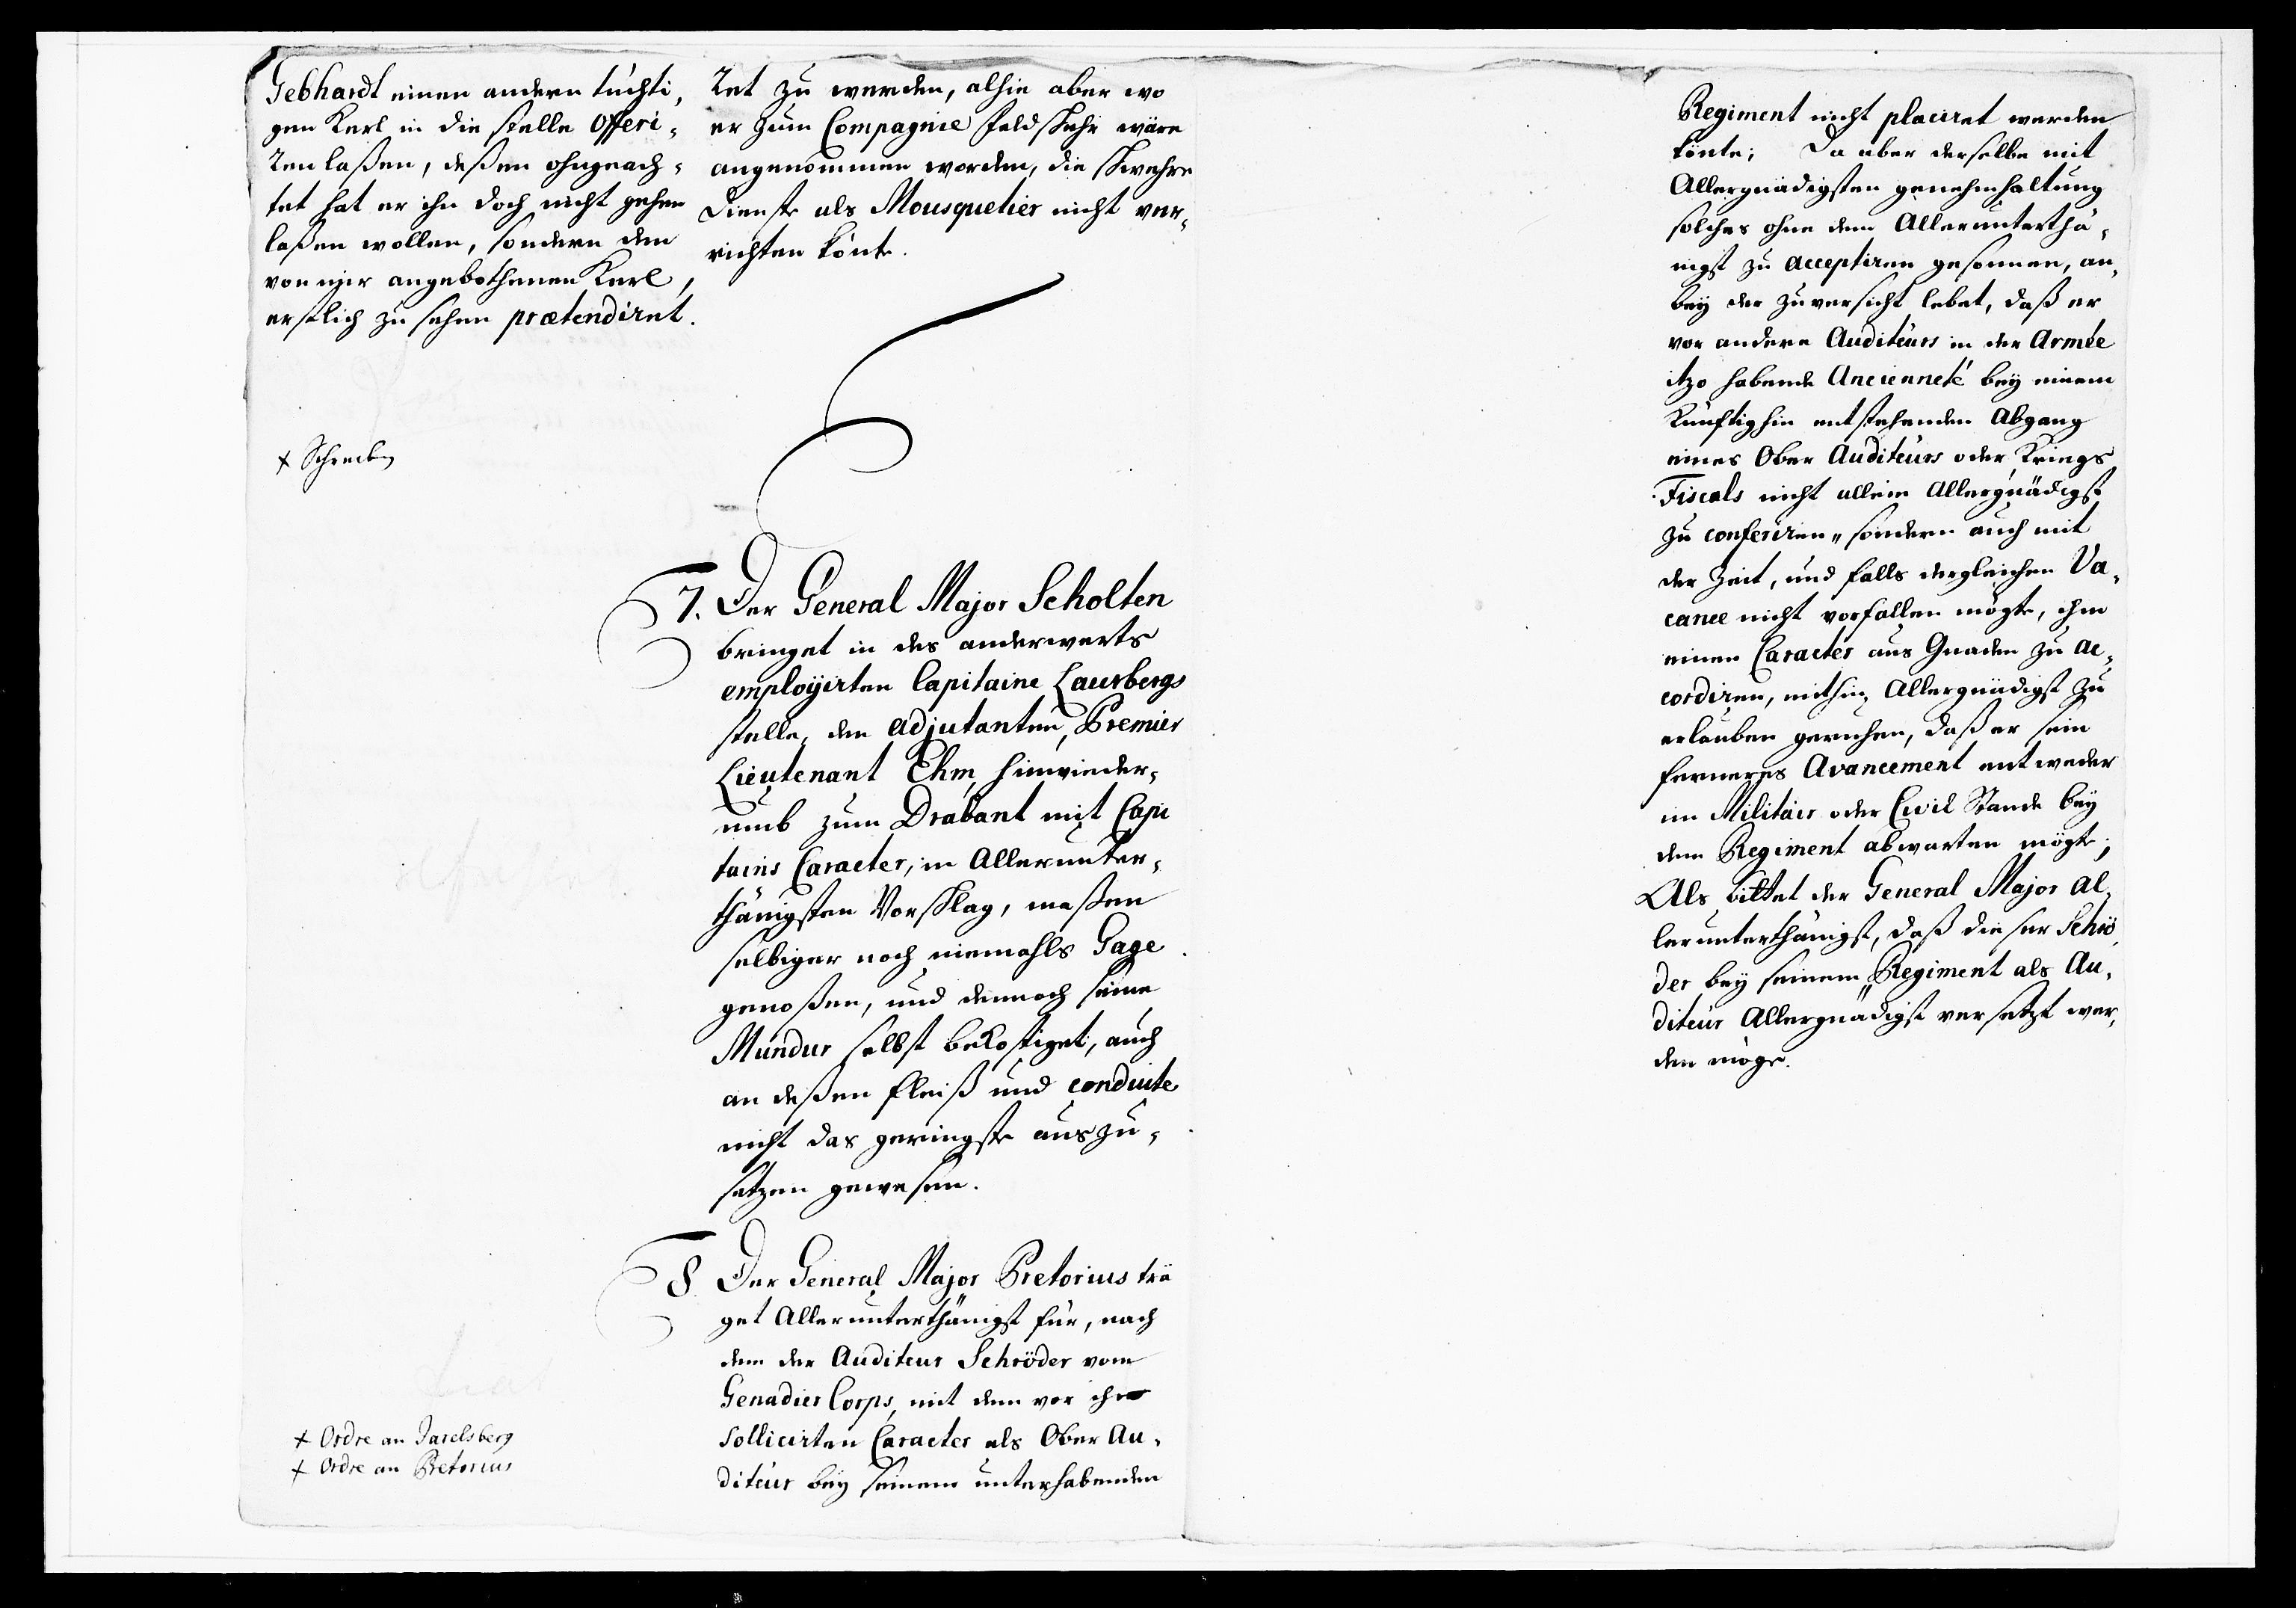 Gebhardt einen andern tüchti,
gen Kerl in die stelle offeri,
ren laßen, deßen ohngeach,
tet hat er ihn doch nicht gehen
laßen wollen, sondern den
von mir angebothenen Kerl,
erstlich zu sehen prætendiret.
ret zu werden, alhie aber wo
er zum Compagnie Feldschehr wäre
angenommen worden, die schwehre
Dienste als Mousquetier nicht ver,
richten könte.
+ Schreiben
7. Der General Major Scholten
bringet in des anderwerts
employirten Capitaine Lauerbergs
stelle, den adjutanten, Premier
Lieutenant Ehm, hinwieder,
umb zum Drabant mit Capi
tains Caracter, in Allerunter,
thänigsten Vorschlag, maßen
selbiger noch niemahls Gage
genoßen, und dennoch seine
Mundur selbst bekostiget, auch
an deßen fleiß und conduite
nicht das geringste auszu,
setzen gewesen.
8. Der General Major Pretorius trä
get Allerunterthänigst für, nach
dem der Auditeur Schröder vom
Genadier Corps, mit dem vor ihm
sollicirten Caracter als Ober Au,
diteur bey seinem unterhabenden
+ Ordre an Jarelsberg
+ Ordre an Pretorius
Regiment nicht placiret werden
könte; Da aber derselbe mit
Allergnädigsten genehmhaltung
solches ohne dem Allerunterthä,
nigst zu acceptiren gesonnen, an,
bey der zuversicht lebet, daß er
vor andere Auditeurs in der Armée
itzo habende Ancienneté bey einem
künftighin entstehenden Abgang
eines Ober Auditeurs oder Kriegs
Fiscals nicht allein Allergnädigst
zu conferiren, sondern auch mit
der Zeit, und falls dergleichen Va,
cance nicht vorfallen mögte, ihm
einen Caracter aus Gnaden zu ac,
cordiren, mithin Allergnädigst zu
erlauben geruhen, daß er sein
ferneres Avancement entweder
im Militair oder Civil Stande bey
dem Regiment abwarten mögte;
Als bittet der General Major al,
lerunterthänigst, daß dieser Schrö,
der bey seinem Regiment als Au,
diteur Allergnädigst versetzt wer,
den möge.